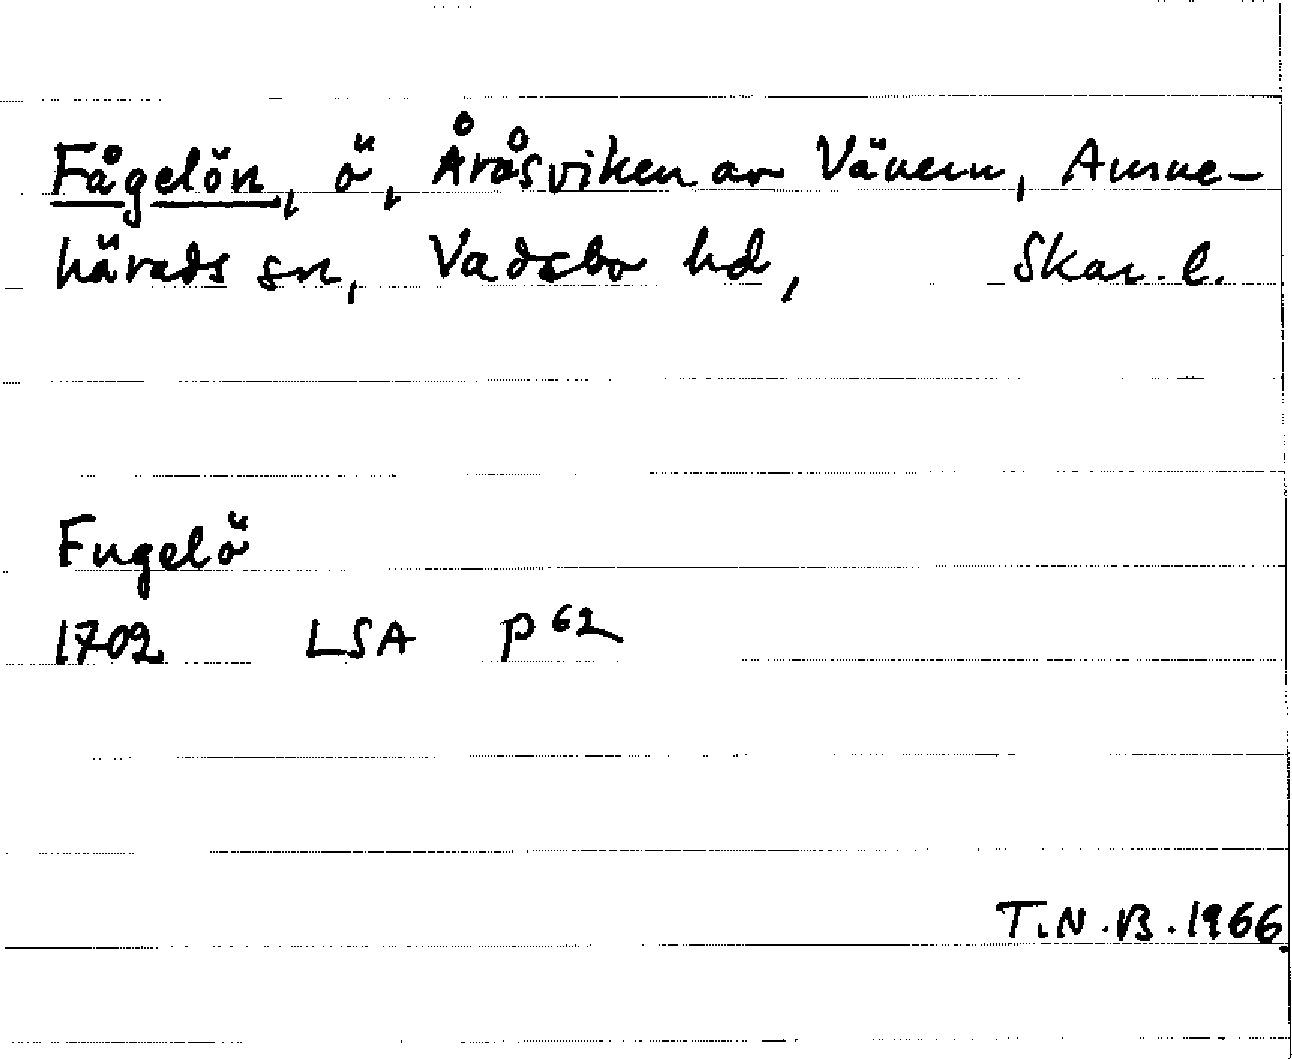 Fågelön, ö, Åråsviken av Vänern, Amne-
härads sn, Vadsbo hd, Skar. l.
Fugelö
1702 LSA P 62
T.N.B. 1966